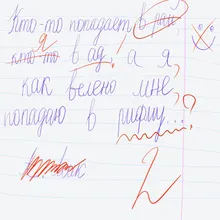 Кто-то попадает в рай,
я
кто-то в ад, а я,
как велено мне,?
попадаю в рифму...
2